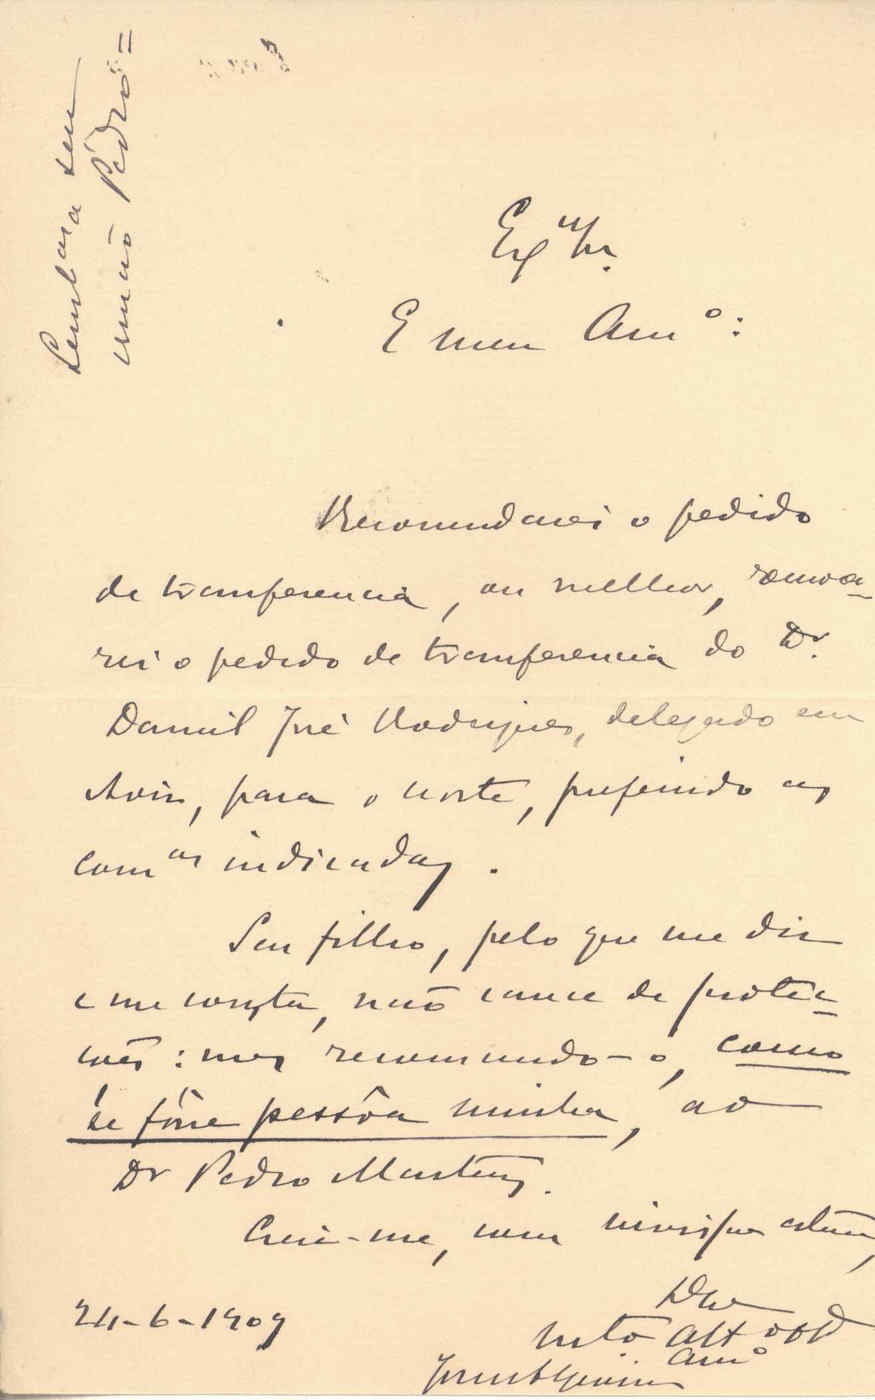 Lembrará seu
irmão Pedro =
Exmo Sr.
E meu Amo:
Recomendarei o pedido
de transferencia, ou melhor, renova-
rei o pedido de transferencia do Dr.
Daniel José Rodrigues, delegado em
Aviz, para o norte, preferindo as
comcas indicadas.
Seu filho, pelo que me diz
e me consta, não carece de protec-
ções: mas recomendo-o, como
se fôsse pessôa minha, ao
Dr Pedro Martins.
Creia-me, com estima,
24-6-1909
De V.
mto Atto
Amo